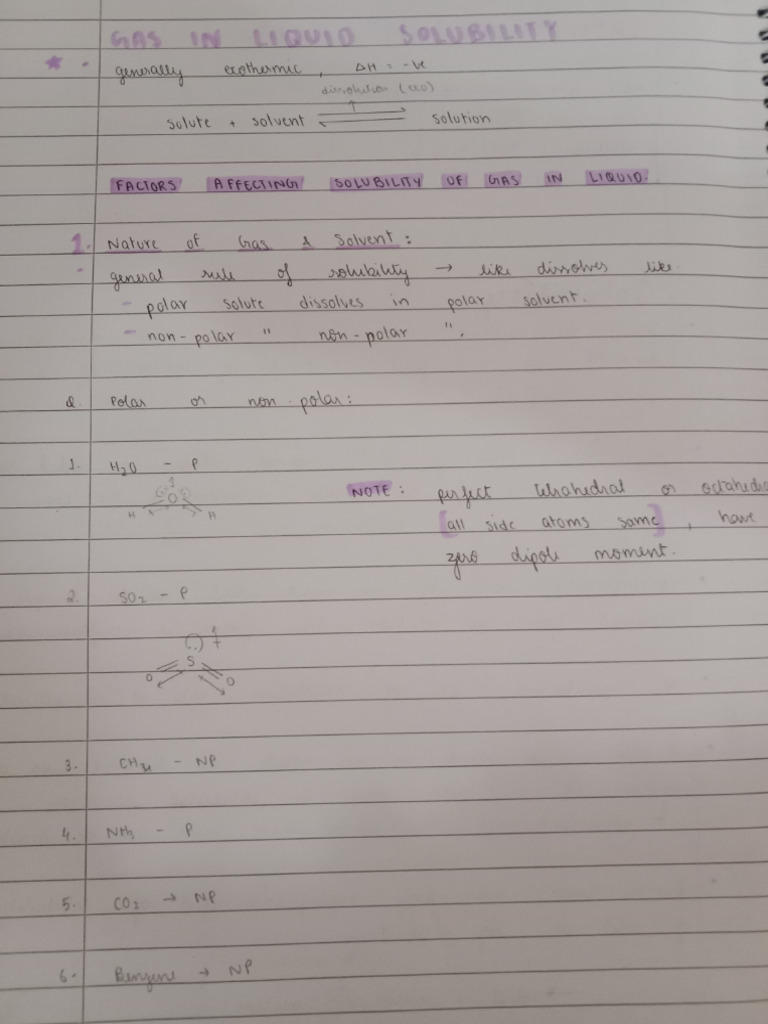 GAS IN LIQUID SOLUBILITY
★ - generally exothermic, ΔH = -ve
dissolution (exo)
solute + solvent ⇌ solution
FACTORS AFFECTING SOLUBILITY OF GAS IN LIQUID.
1. Nature of Gas & Solvent:
- general rule of solubility → like dissolves like.
- polar solute dissolves in polar solvent.
- non-polar " non-polar ".
Q. Polar or non-polar:
1. H₂O - P
O
H H
NOTE: perfect tetrahedral or octahedra
[all side atoms same], have
zero dipole moment.
2. SO₂ - P
S
O O
3. CH₄ - NP
4. NH₃ - P
5. CO₂ → NP
6. Benzene → NP